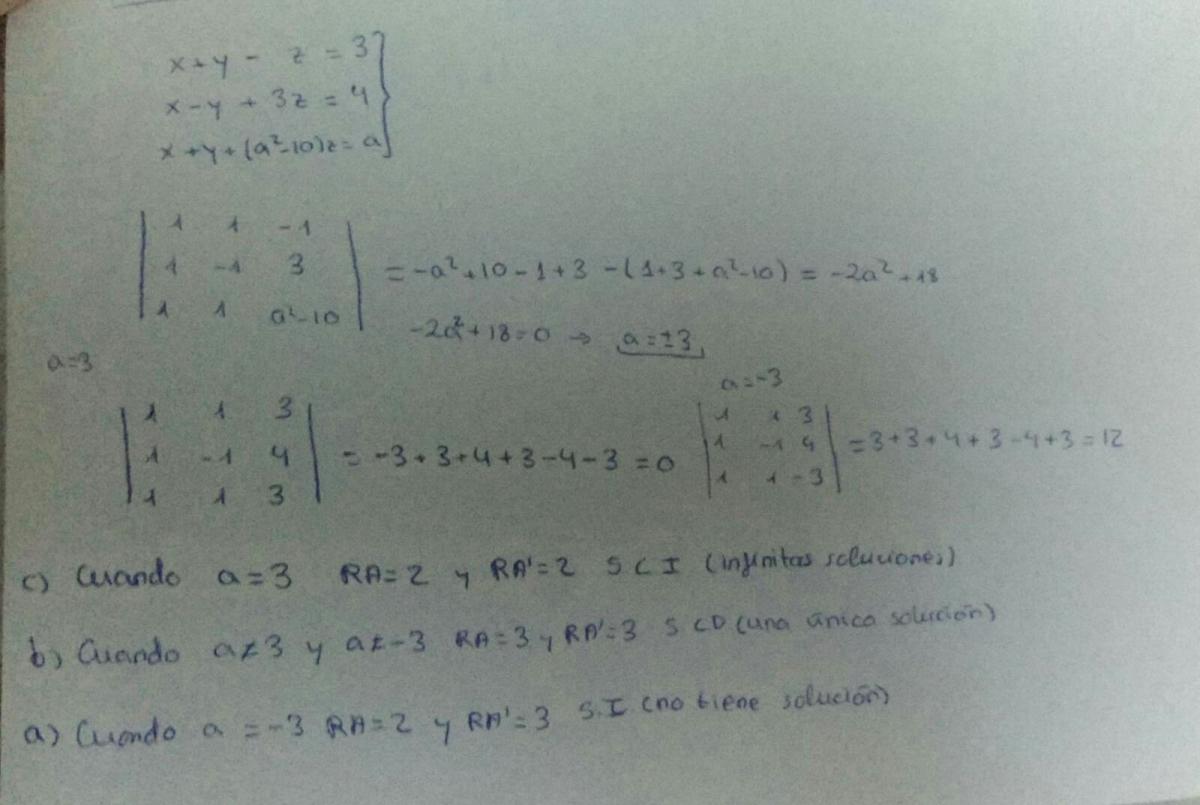 x+y - z = 3
x-y + 3z = 4
x+y+(a²-10)z = a
| 1 1 -1 |
| 1 -1 3 | = -a²+10-1+3-(1+3+a²-10) = -2a²+18
| 1 1 a²-10 |
-2a²+18=0 → a=±3
a=3
| 1 1 3 |
| 1 -1 4 | = -3+3+4+3-4-3 = 0
| 1 1 3 |
a=-3
| 1 1 3 |
| 1 -1 4 | = 3+3+4+3-4+3 = 12
| 1 1 -3 |
c) Cuando a=3 RA=2 y RA'=2 S C I (infinitas soluciones)
b) Cuando a≠3 y a≠-3 RA=3 y RA'=3 S CD (una única solución)
a) Cuando a = -3 RA=2 y RA'=3 S.I (no tiene solución)